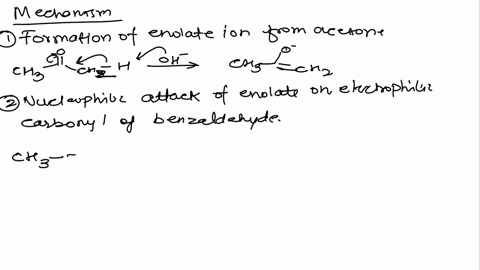 Mechanism
① Formation of enolate ion from acetone
O O⁻
CH₃ CH₂–H OH⁻ CH₃ CH₂
② Nucleophilic attack of enolate on electrophilic
carbonyl of benzaldehyde.
CH₃--